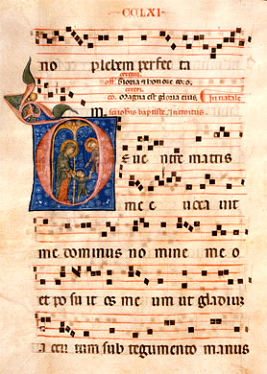 CCLXI
no plebem perfec ti
Gloria & honore coro.
co. Magna est gloria eius. In natale
iohis baptiste. introitus.
DE uen tre matris
me e uoca uit
me dominus no mine me o
et po su it os me um ut gladium
a cu tum sub tegumento manus